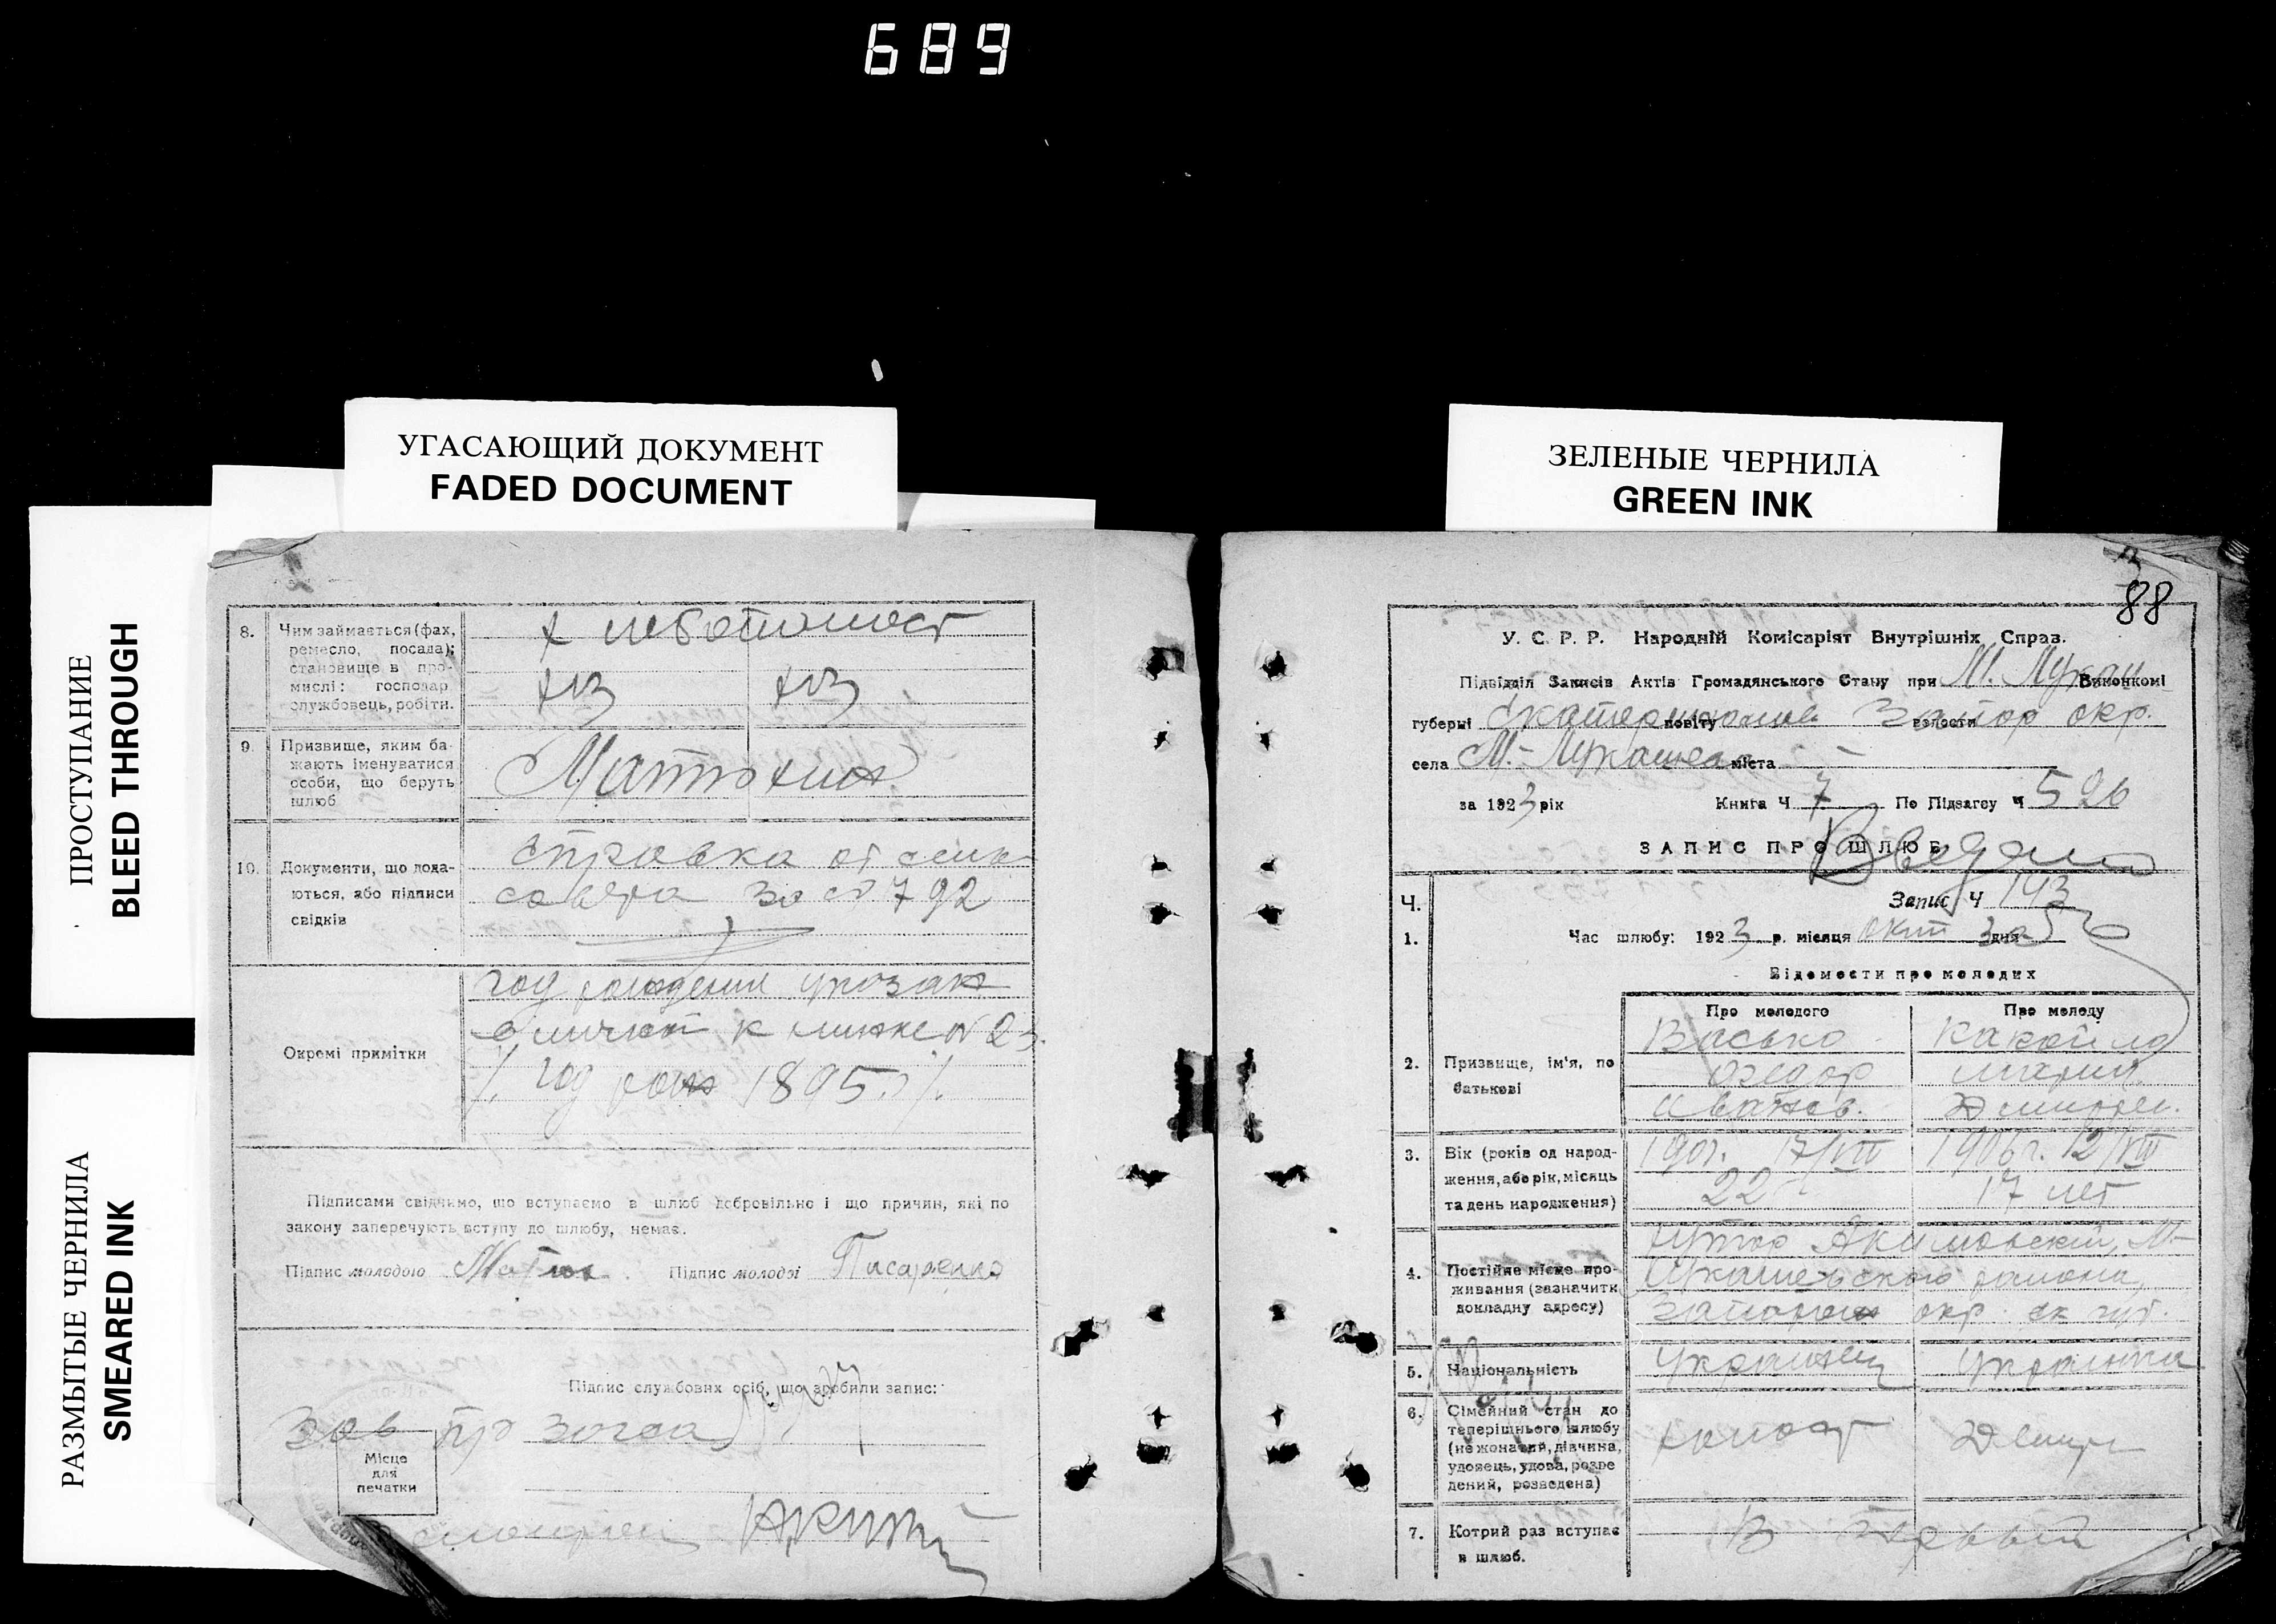 689
УГАСАЮЩИЙ ДОКУМЕНТ
FADED DOCUMENT
ЗЕЛЕНЫЕ ЧЕРНИЛА
GREEN INK
ПРОСТУПАНИЕ
BLEED THROUGH
РАЗМЫТЫЕ ЧЕРНИЛА
SMEARED INK
8. Чим займається (фах,
ремесло, посада);
становище в про-
мислі: господар
службовець, робітн.
хлебопашест
хоз хоз
9. Призвище, яким ба-
жають іменуватися
особи, що беруть
шлюб
10. Документи, що дода-
ються, або підписи
свідків
Справка от сель
совета за № 792
Окремі примітки
год рождения указан
к книге № 23
год рож 1895
Підписами свідчимо, що вступаємо в шлюб добровільно і що причин, які по
закону заперечують вступу до шлюбу, немає.
Підпис молодого Підпис молодої Писаренко
Підпис службових осіб, що зробили запис:
Зав
Місце
для
печатки
88
У. С. Р. Р. Народній Комісаріят Внутрішніх Справ.
Підвідділ Записів Актів Громадянського Стану при М. Лукаш Виконкомі
губерні Екатеринослав повіту Запор волости окр.
села М.-Лукашев міста —
за 1923 рік Книга Ч 7 По Підзагсу Ч 526
ЗАПИС ПРО ШЛЮБ
Введено
Запис Ч 143
Ч.
1. Час шлюбу: 1923 р. місяця окт 3 дня
Відомости про молодих
Про молодого Про молоду
2. Призвище, ім'я, по
батькові
Васько
Федор Мария
Иванов. Дмитрев.
3. Вік (років од народ-
ження, або рік, місяць
та день народження)
1901. 17/VII 1906 г. 12/VIII
22 17 лет
4. Постійне місце про-
живання (зазначити
докладну адресу)
Хутор Акимовский, М-
Лукашевского района,
Запорож окр. ек губ.
5. Національність Украинец Украинка
6. Сімейний стан до
теперішнього шлюбу
(не жонатий, дівчина,
удовець, удова, розве
дений, розведена)
холост Девица
7. Котрий раз вступає
в шлюб.
В первый